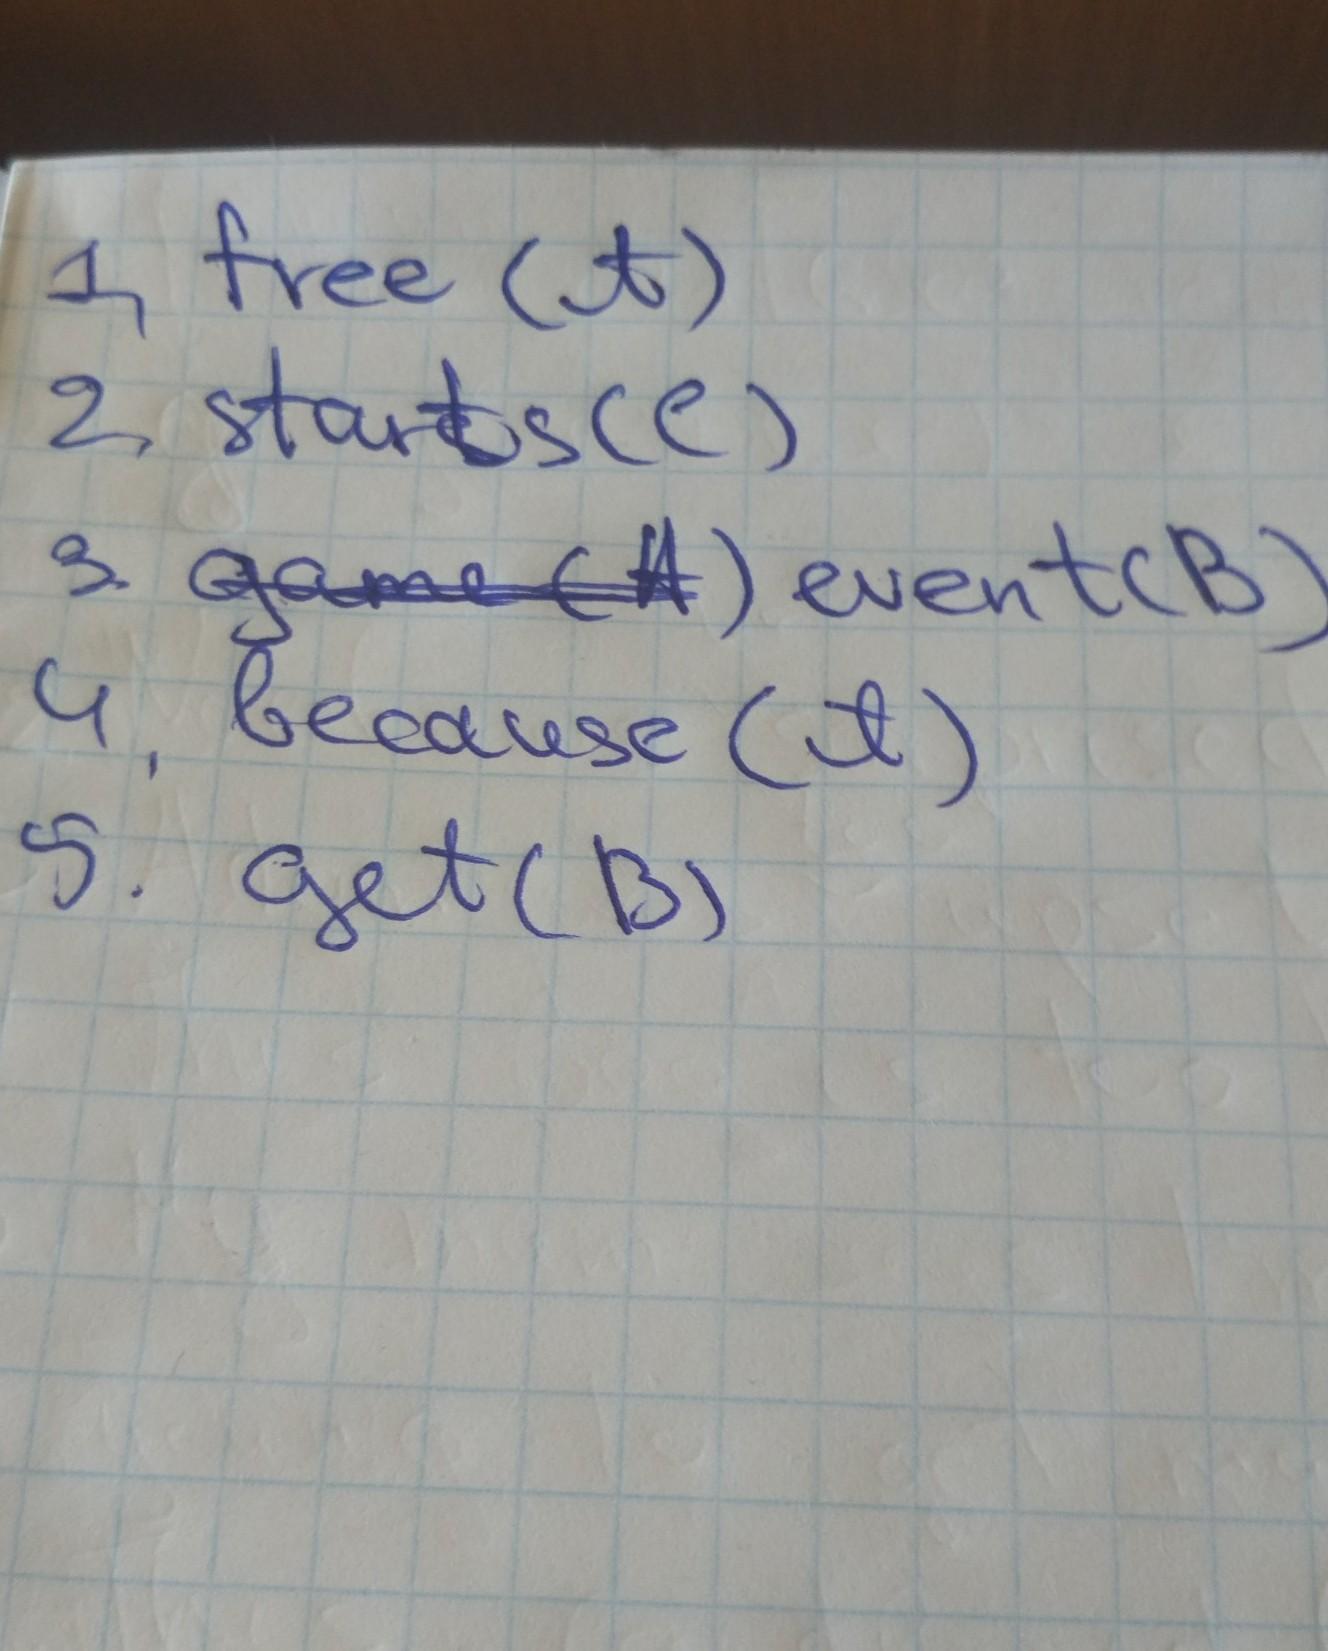 1, free (A)
2, starts(C)
3. game (A) event(B)
4, because (A)
5. get(B)